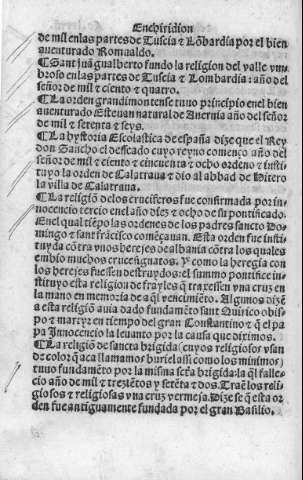 Enchiridion
de mil enlas partes de Tuscia & Lõbardia por el bien
auenturado Romualdo.
¶ Sant juã gualberto fundo la religion del valle vm-
broso enlas partes de Tuscia & Lombardia: año del
señor de mil & ciento & quatro.
¶ La orden grandimontense tuuo principio enel bien
auenturado Esteuan natural de Aluernia año del señor
de mil & setenta & seys.
¶ La hystoria Escolastica de españa dize que el Rey
don Sancho el desseado cuyo reyno començo año del
señor de mil & ciento & cincuenta & ocho ordeno & insti-
tuyo la orden de Calatraua & dio al abbad de Hitero
la villa de Calatraua.
¶ La religiõ delos cruciferos fue confirmada por in-
nocencio tercio enel año diez & ocho de su pontificado.
Enel qual tiẽpo las ordenes de los padres sancto Do-
mingo & sant frãcisco comẽçauan. Esta orden fue insti-
tuyda cõtra vnos herejes de albania cõtra los quales
embio muchos cruceñgnatos. Y como la heregia con
los herejes fuessen destruydos: el summo pontifice in-
stituyo esta religion de frayles q̃ traxessen vna cruz en
la mano en memoria de aq̃l vencimiẽto. Algunos dizẽ
a esta religiõ auia dado fundamẽto sant Quirico obis-
po & martyr en tiempo del gran Constantino & q̃ el pa
pa Innocencio la leuanto por la causa que diximos.
¶ La religiõ de sancta brigida (cuyos religiosos vsan
de color q̃ aca llamamos buriel assi como los minimos)
tuuo fundamẽto por la misma scr̃a brigida: la q̃l falle-
cio año de mil & trezẽtos y setẽta & dos. Traẽ los reli
giosos & religiosas vna cruz vermeja. Dize se q̃ esta or
den fue antiguamente fundada por el gran Basilio.